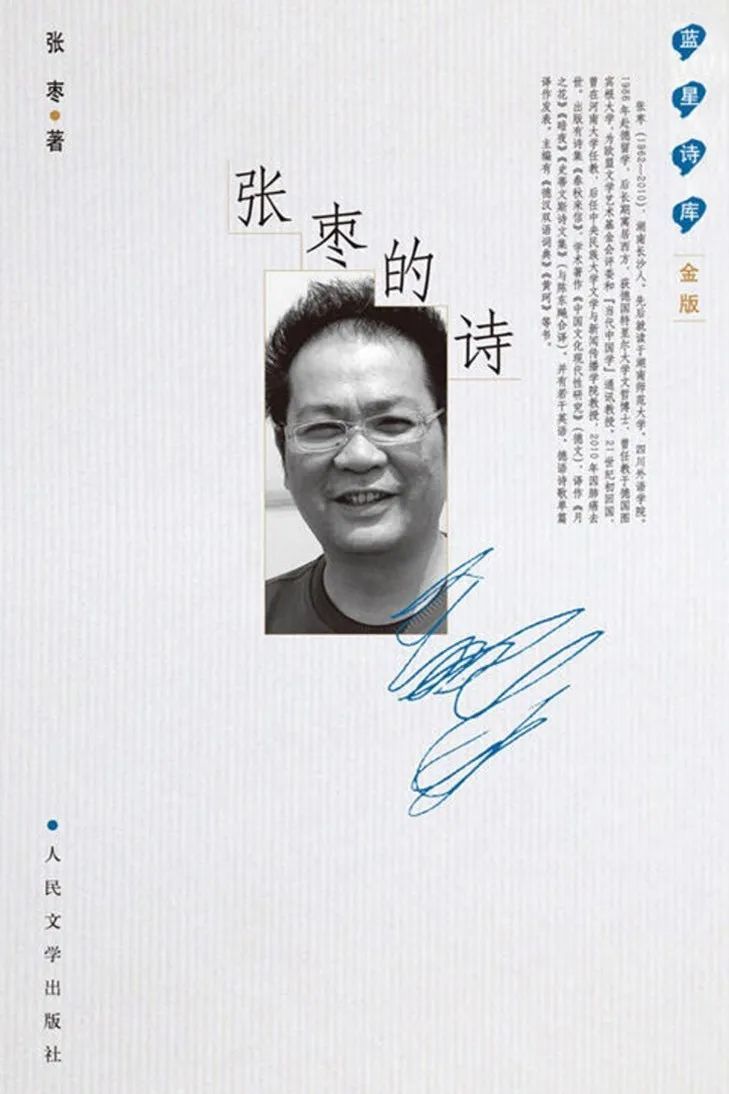 蓝星诗库
金版
张枣（1962—2010），湖南长沙人。先后就读于湖南师范大学、四川外语学院。
1986年赴德留学，后长期寓居西方，获德国特里尔大学文哲博士，曾任教于德国图
宾根大学，为欧盟文学艺术基金会评委和『当代中国学』通讯教授，21世纪初回国，
曾在河南大学任教，后任中央民族大学文学与新闻传播学院教授，2010年因肺癌去
世。出版有诗集《春秋来信》，学术著作《中国文化现代性研究》（德文），译作《月
之花》《暗夜》《史蒂文斯诗文集》（与陈东飚合译），并有若干英语、德语诗歌单篇
译作发表。主编有《德汉双语词典》《黄珂》等书。
张枣的诗
张枣·著
·人民文学出版社